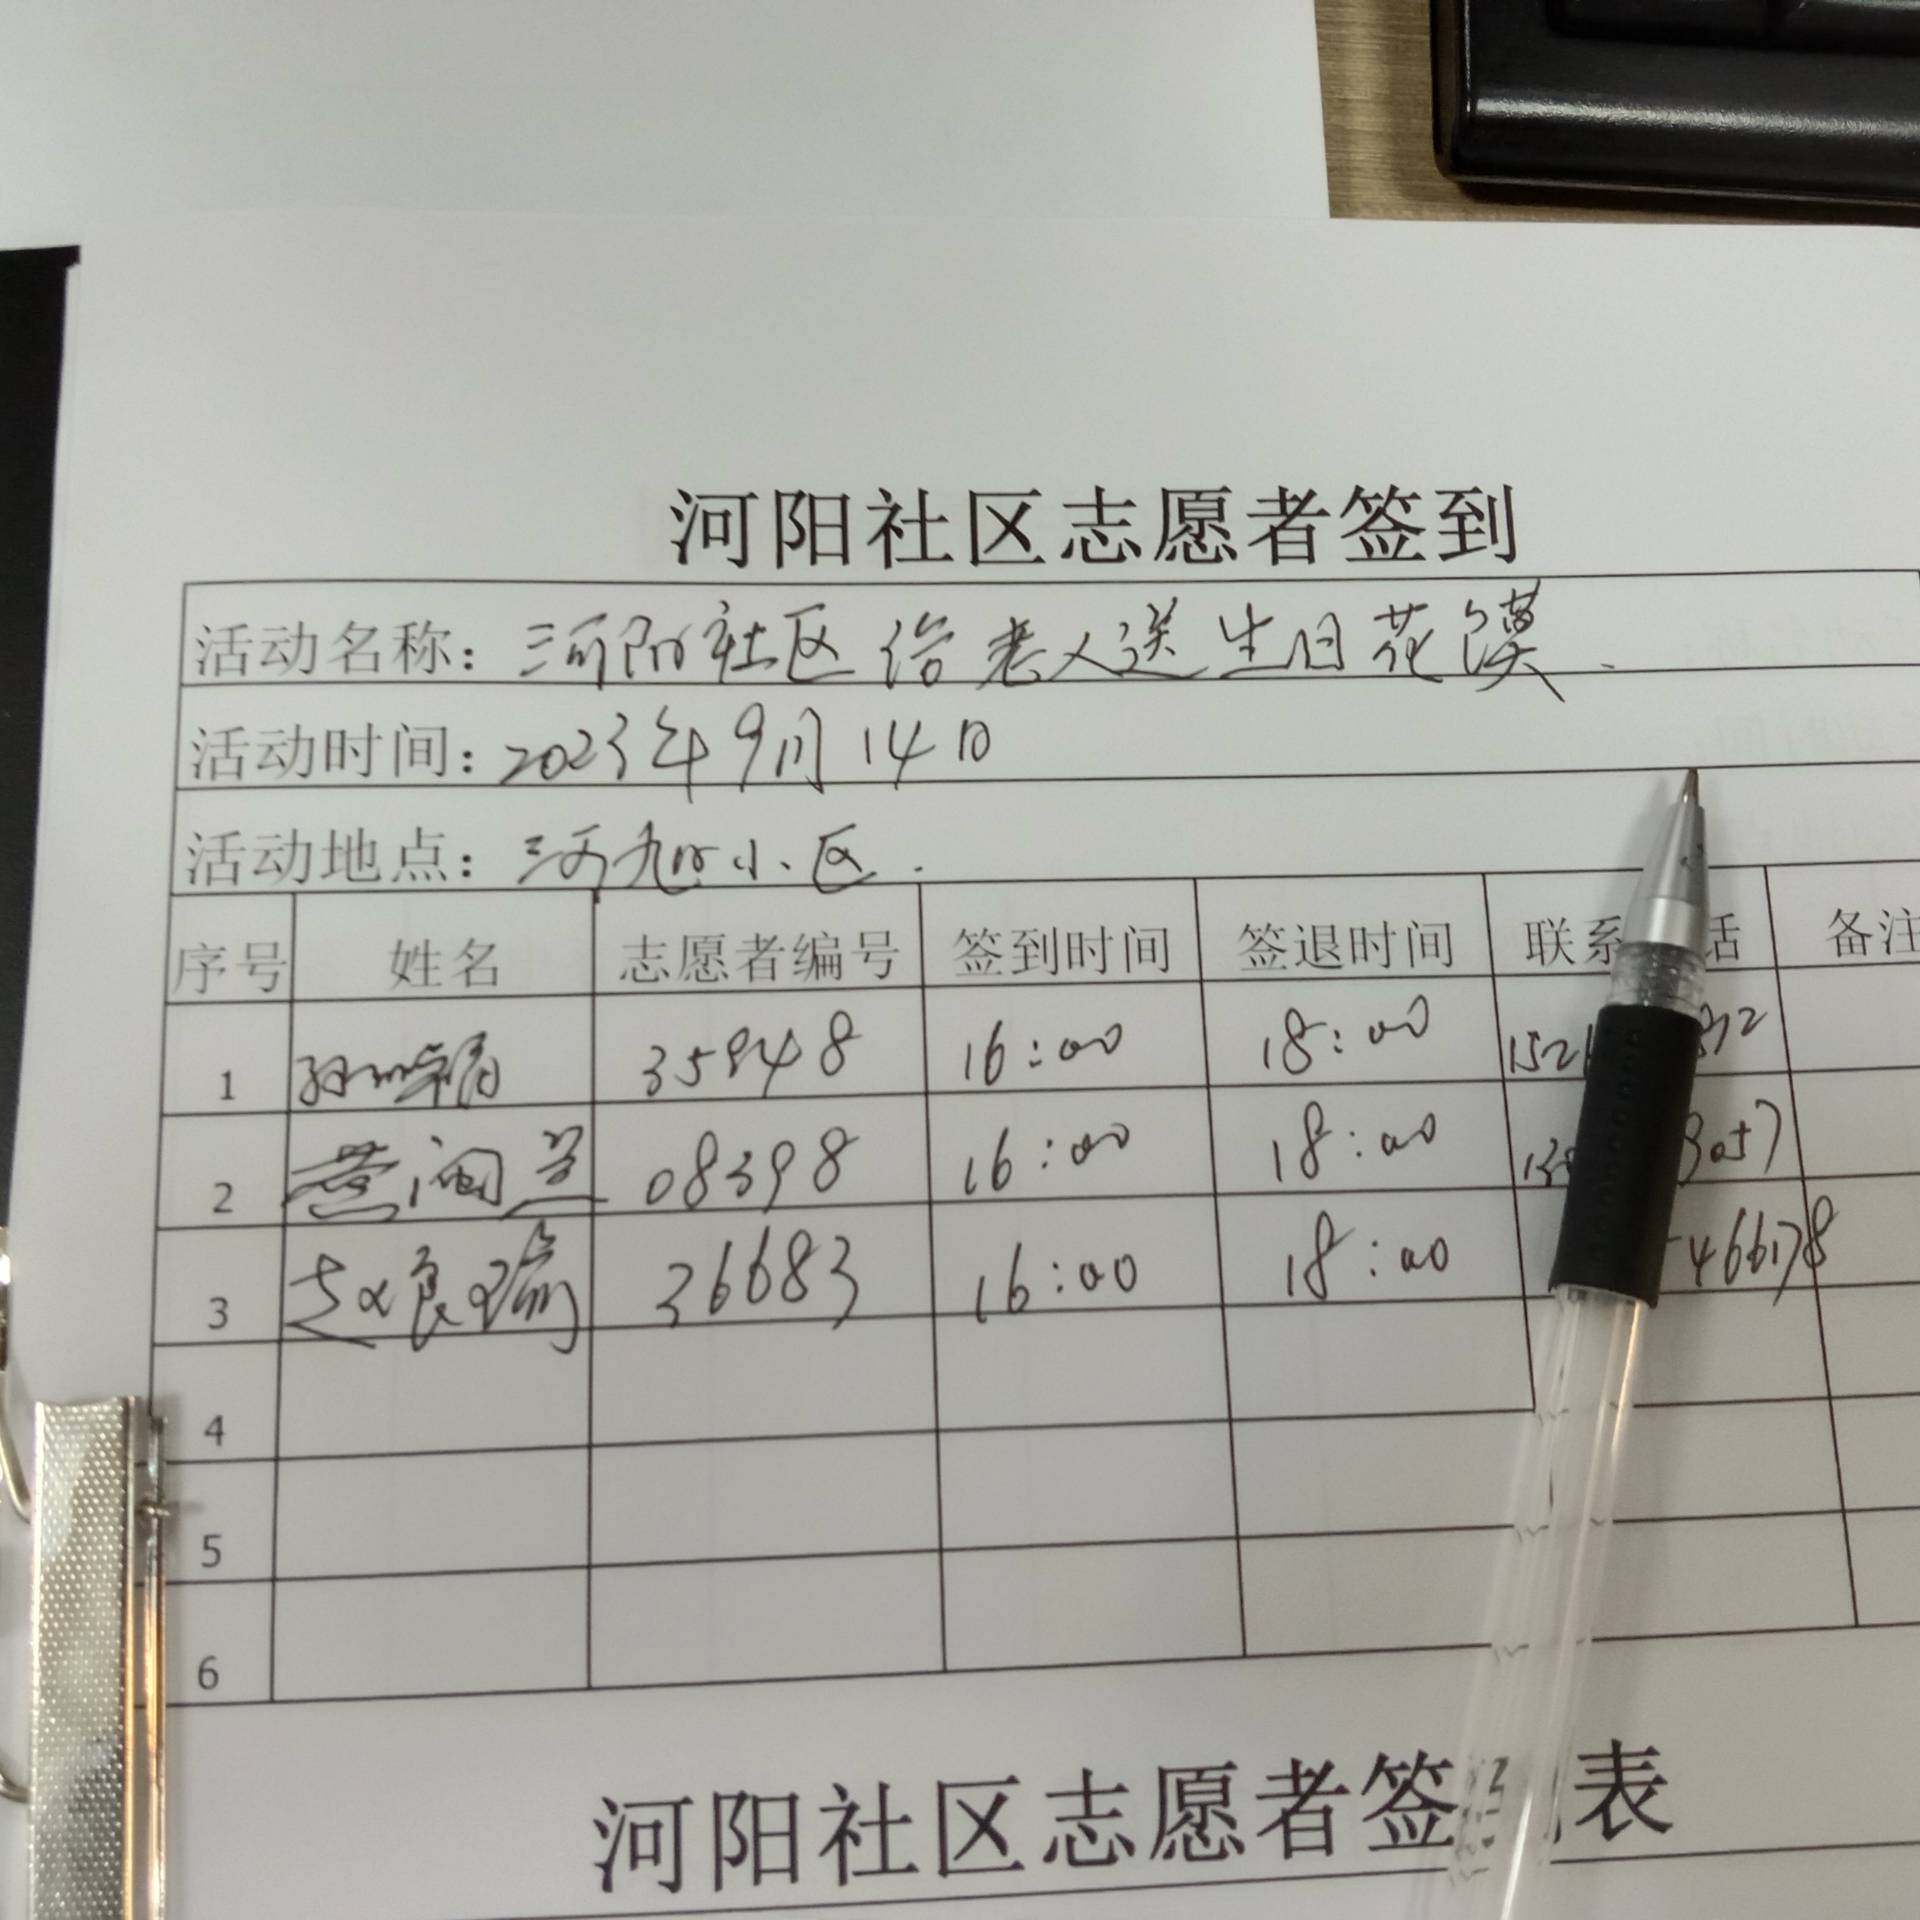 河阳社区志愿者签到
活动名称：河阳社区给老人送生日花馍.
活动时间：2023年9月14日
活动地点：河 小区.
序号 姓名 志愿者编号 签到时间 签退时间 联系 话 备注
1 35848 16:00 18:00 152
2 08398 16:00 18:00 3057
3 赵良瑜 36683 16:00 18:00 466178
4
5
6
河阳社区志愿者签 表